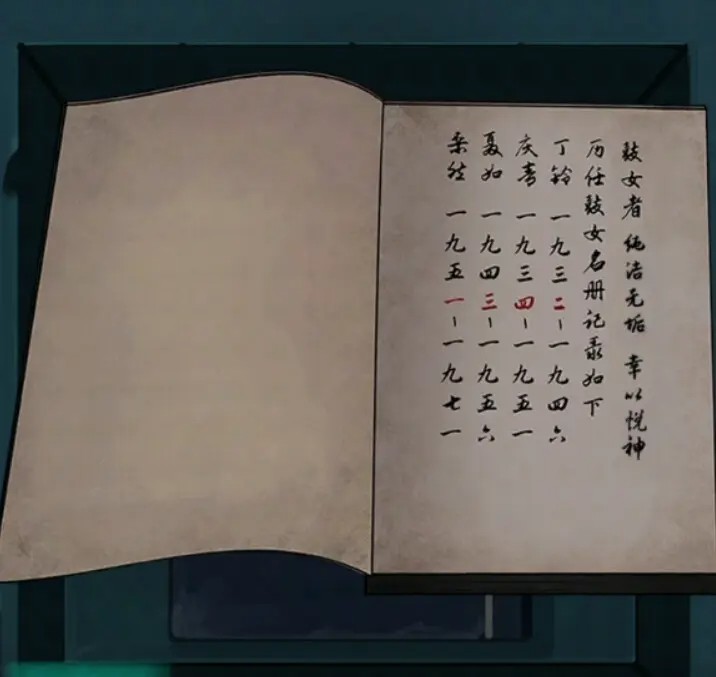 鼓女者 纯洁无垢 幸以悦神
历任鼓女名册记录如下
丁铃 一九三二-一九四六
庆青 一九三四-一九五一
聂如 一九四三-一九五六
桑然 一九五一-一九七一